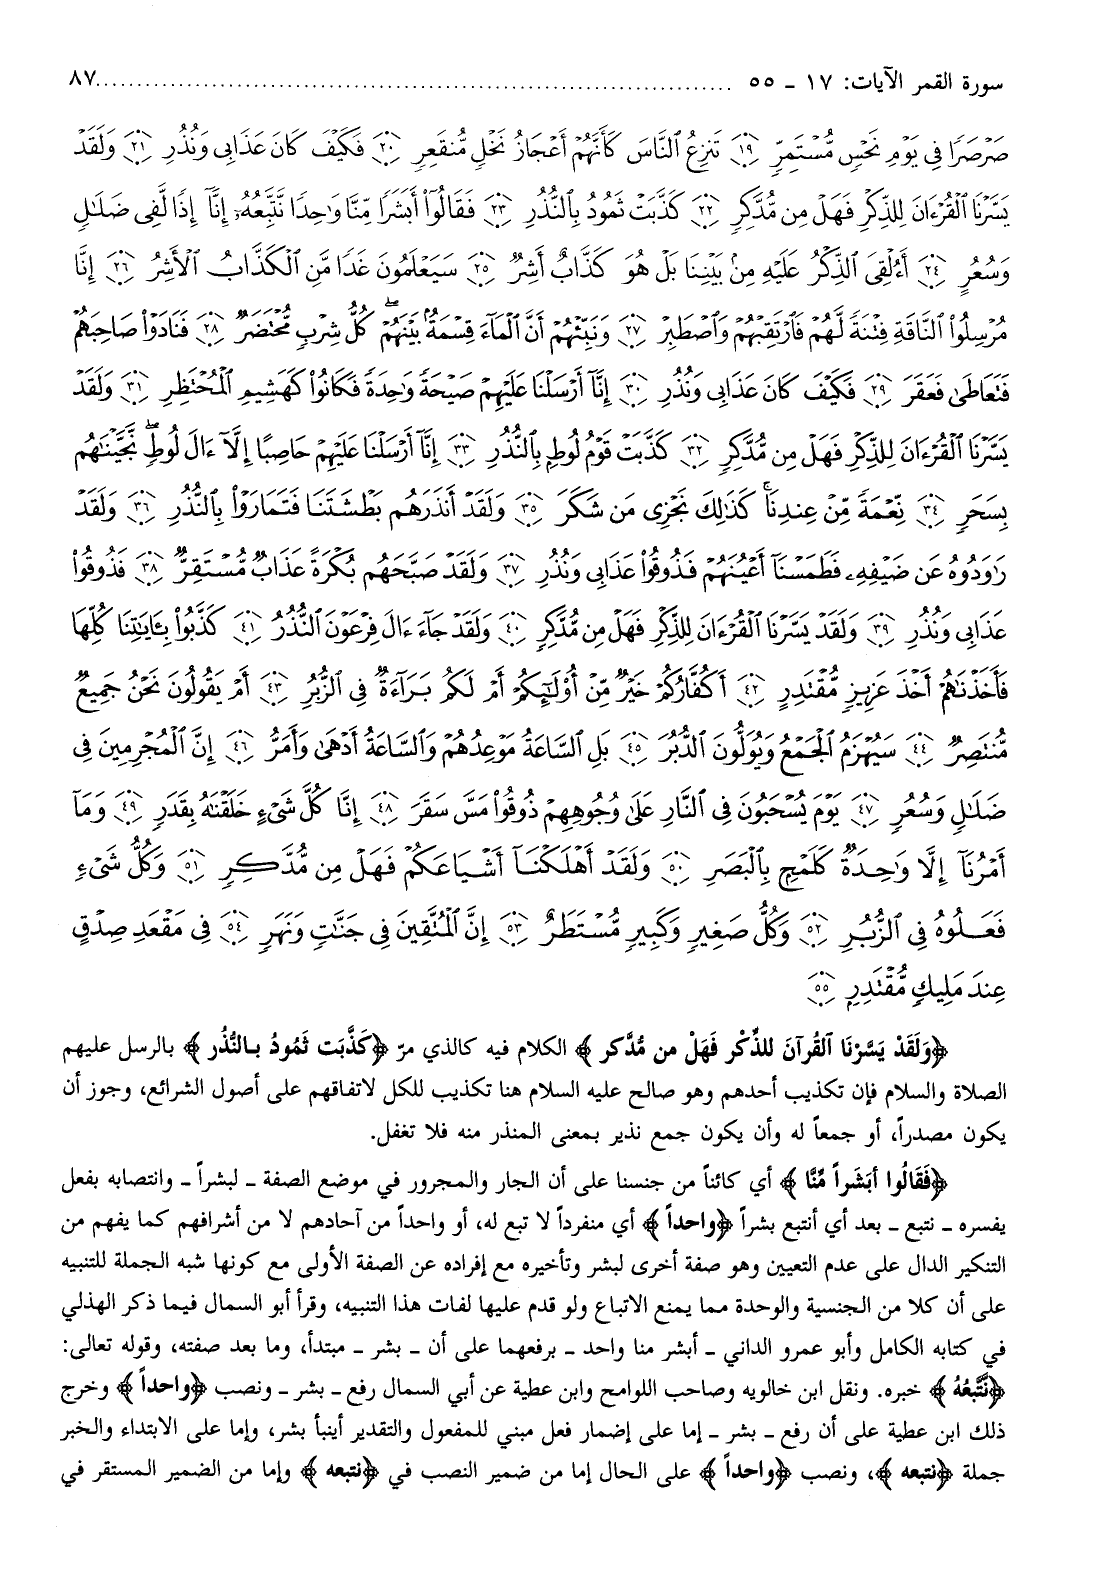 سورة القمر الآيات: ١٧ ـ ٥٥ ........................................................ ٨٧
صَرْصَرًا فِي يَوْمِ نَحْسٍ مُّسْتَمِرٍّ ﴿١٩﴾ تَنزِعُ ٱلنَّاسَ كَأَنَّهُمْ أَعْجَازُ نَخْلٍ مُّنقَعِرٍ ﴿٢٠﴾ فَكَيْفَ كَانَ عَذَابِي وَنُذُرِ ﴿٢١﴾ وَلَقَدْ
يَسَّرْنَا ٱلْقُرْءَانَ لِلذِّكْرِ فَهَلْ مِن مُّدَّكِرٍ ﴿٢٢﴾ كَذَّبَتْ ثَمُودُ بِٱلنُّذُرِ ﴿٢٣﴾ فَقَالُوٓا۟ أَبَشَرًا مِّنَّا وَٰحِدًا نَّتَّبِعُهُۥٓ إِنَّآ إِذًا لَّفِي ضَلَٰلٍ
وَسُعُرٍ ﴿٢٤﴾ أَءُلْقِيَ ٱلذِّكْرُ عَلَيْهِ مِنۢ بَيْنِنَا بَلْ هُوَ كَذَّابٌ أَشِرٌ ﴿٢٥﴾ سَيَعْلَمُونَ غَدًا مَّنِ ٱلْكَذَّابُ ٱلْأَشِرُ ﴿٢٦﴾ إِنَّا
مُرْسِلُوا۟ ٱلنَّاقَةِ فِتْنَةً لَّهُمْ فَٱرْتَقِبْهُمْ وَٱصْطَبِرْ ﴿٢٧﴾ وَنَبِّئْهُمْ أَنَّ ٱلْمَآءَ قِسْمَةٌۢ بَيْنَهُمْ ۖ كُلُّ شِرْبٍ مُّحْتَضَرٌ ﴿٢٨﴾ فَنَادَوْا۟ صَاحِبَهُمْ
فَتَعَاطَىٰ فَعَقَرَ ﴿٢٩﴾ فَكَيْفَ كَانَ عَذَابِي وَنُذُرِ ﴿٣٠﴾ إِنَّآ أَرْسَلْنَا عَلَيْهِمْ صَيْحَةً وَٰحِدَةً فَكَانُوا۟ كَهَشِيمِ ٱلْمُحْتَظِرِ ﴿٣١﴾ وَلَقَدْ
يَسَّرْنَا ٱلْقُرْءَانَ لِلذِّكْرِ فَهَلْ مِن مُّدَّكِرٍ ﴿٣٢﴾ كَذَّبَتْ قَوْمُ لُوطٍۭ بِٱلنُّذُرِ ﴿٣٣﴾ إِنَّآ أَرْسَلْنَا عَلَيْهِمْ حَاصِبًا إِلَّآ ءَالَ لُوطٍ ۖ نَّجَّيْنَٰهُم
بِسَحَرٍ ﴿٣٤﴾ نِّعْمَةً مِّنْ عِندِنَا ۚ كَذَٰلِكَ نَجْزِي مَن شَكَرَ ﴿٣٥﴾ وَلَقَدْ أَنذَرَهُم بَطْشَتَنَا فَتَمَارَوْا۟ بِٱلنُّذُرِ ﴿٣٦﴾ وَلَقَدْ
رَٰوَدُوهُ عَن ضَيْفِهِۦ فَطَمَسْنَآ أَعْيُنَهُمْ فَذُوقُوا۟ عَذَابِي وَنُذُرِ ﴿٣٧﴾ وَلَقَدْ صَبَّحَهُم بُكْرَةً عَذَابٌ مُّسْتَقِرٌّ ﴿٣٨﴾ فَذُوقُوا۟
عَذَابِي وَنُذُرِ ﴿٣٩﴾ وَلَقَدْ يَسَّرْنَا ٱلْقُرْءَانَ لِلذِّكْرِ فَهَلْ مِن مُّدَّكِرٍ ﴿٤٠﴾ وَلَقَدْ جَآءَ ءَالَ فِرْعَوْنَ ٱلنُّذُرُ ﴿٤١﴾ كَذَّبُوا۟ بِـَٔايَٰتِنَا كُلِّهَا
فَأَخَذْنَٰهُمْ أَخْذَ عَزِيزٍ مُّقْتَدِرٍ ﴿٤٢﴾ أَكُفَّارُكُمْ خَيْرٌ مِّنْ أُو۟لَٰٓئِكُمْ أَمْ لَكُم بَرَآءَةٌ فِي ٱلزُّبُرِ ﴿٤٣﴾ أَمْ يَقُولُونَ نَحْنُ جَمِيعٌ
مُّنتَصِرٌ ﴿٤٤﴾ سَيُهْزَمُ ٱلْجَمْعُ وَيُوَلُّونَ ٱلدُّبُرَ ﴿٤٥﴾ بَلِ ٱلسَّاعَةُ مَوْعِدُهُمْ وَٱلسَّاعَةُ أَدْهَىٰ وَأَمَرُّ ﴿٤٦﴾ إِنَّ ٱلْمُجْرِمِينَ فِي
ضَلَٰلٍ وَسُعُرٍ ﴿٤٧﴾ يَوْمَ يُسْحَبُونَ فِي ٱلنَّارِ عَلَىٰ وُجُوهِهِمْ ذُوقُوا۟ مَسَّ سَقَرَ ﴿٤٨﴾ إِنَّا كُلَّ شَيْءٍ خَلَقْنَٰهُ بِقَدَرٍ ﴿٤٩﴾ وَمَآ
أَمْرُنَآ إِلَّا وَٰحِدَةٌ كَلَمْحٍۭ بِٱلْبَصَرِ ﴿٥٠﴾ وَلَقَدْ أَهْلَكْنَآ أَشْيَاعَكُمْ فَهَلْ مِن مُّدَّكِرٍ ﴿٥١﴾ وَكُلُّ شَيْءٍ
فَعَلُوهُ فِي ٱلزُّبُرِ ﴿٥٢﴾ وَكُلُّ صَغِيرٍ وَكَبِيرٍ مُّسْتَطَرٌ ﴿٥٣﴾ إِنَّ ٱلْمُتَّقِينَ فِي جَنَّٰتٍ وَنَهَرٍ ﴿٥٤﴾ فِي مَقْعَدِ صِدْقٍ
عِندَ مَلِيكٍ مُّقْتَدِرٍۭ ﴿٥٥﴾
﴿وَلَقَدْ يَسَّرْنَا ٱلقُرآنَ للذِّكْر فَهَلْ من مُّدَّكر﴾ الكلام فيه كالذي مرّ ﴿كَذَّبَت ثَمُودُ بـالنُّذُر﴾ بالرسل عليهم
الصلاة والسلام فإن تكذيب أحدهم وهو صالح عليه السلام هنا تكذيب للكل لاتفاقهم على أصول الشرائع، وجوز أن
يكون مصدراً، أو جمعاً له وأن يكون جمع نذير بمعنى المنذر منه فلا تغفل.
﴿فَقَالُوا أبَشَراً مِّنَّا﴾ أي كائناً من جنسنا على أن الجار والمجرور في موضع الصفة ـ لبشراً ـ وانتصابه بفعل
يفسره ـ نتبع ـ بعد أي أنتبع بشراً ﴿واحداً﴾ أي منفرداً لا تبع له، أو واحداً من آحادهم لا من أشرافهم كما يفهم من
التنكير الدال على عدم التعيين وهو صفة أخرى لبشر وتأخيره مع إفراده عن الصفة الأولى مع كونها شبه الجملة للتنبيه
على أن كلا من الجنسية والوحدة مما يمنع الاتباع ولو قدم عليها لفات هذا التنبيه، وقرأ أبو السمال فيما ذكر الهذلي
في كتابه الكامل وأبو عمرو الداني ـ أبشر منا واحد ـ برفعهما على أن ـ بشر ـ مبتدأ، وما بعد صفته، وقوله تعالى:
﴿نَّتَّبعُهُ﴾ خبره. ونقل ابن خالويه وصاحب اللوامح وابن عطية عن أبي السمال رفع ـ بشر ـ ونصب ﴿واحداً﴾ وخرج
ذلك ابن عطية على أن رفع ـ بشر ـ إما على إضمار فعل مبني للمفعول والتقدير أينبأ بشر، وإما على الابتداء والخبر
جملة ﴿نتبعه﴾، ونصب ﴿واحداً﴾ على الحال إما من ضمير النصب في ﴿نتبعه﴾ وإما من الضمير المستقر في